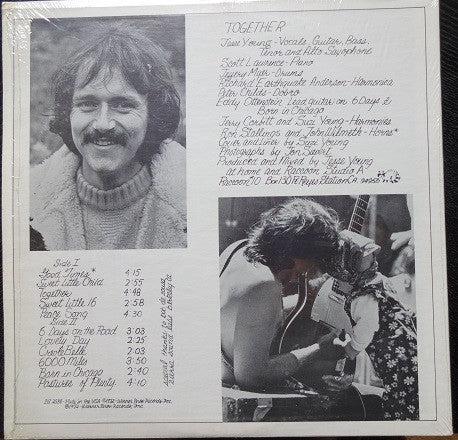 TOGETHER
Jesse Young - Vocals, Guitar, Bass,
Tenor and Alto Saxophone
Scott Lawrence - Piano
Jeffrey Myer - Drums
Richard Earthquake Anderson - Harmonica
Peter Childs - Dobro
Eddy Ottenstein Lead guitar on 6 Days &
Born in Chicago
Jerry Corbitt and Suzi Young - Harmonies
Ron Stallings and John Wilmeth - Horns*
Cover and Liner by Suzi Young
Photographs by Jon Sievert
Produced and Mixed by Jesse Young
at home and Raccoon Studio A
Raccoon #10 Box 130 Pt. Reyes Station CA.
Side I
Good Times* 4:15
Sweet Little Child 2:55
Together 4:48
Sweet Little 16 2:58
Peace Song 4:30
Side II
6 Days on the Road 3:03
Lovely Day 2:25
Creole Belle 3:03
6000 Miles 3:50
Born in Chicago 2:40
Pastures of Plenty 4:10
special thanks to
Made in the USA Warner Bros. Records, Inc.
Warner Bros. Records, Inc.